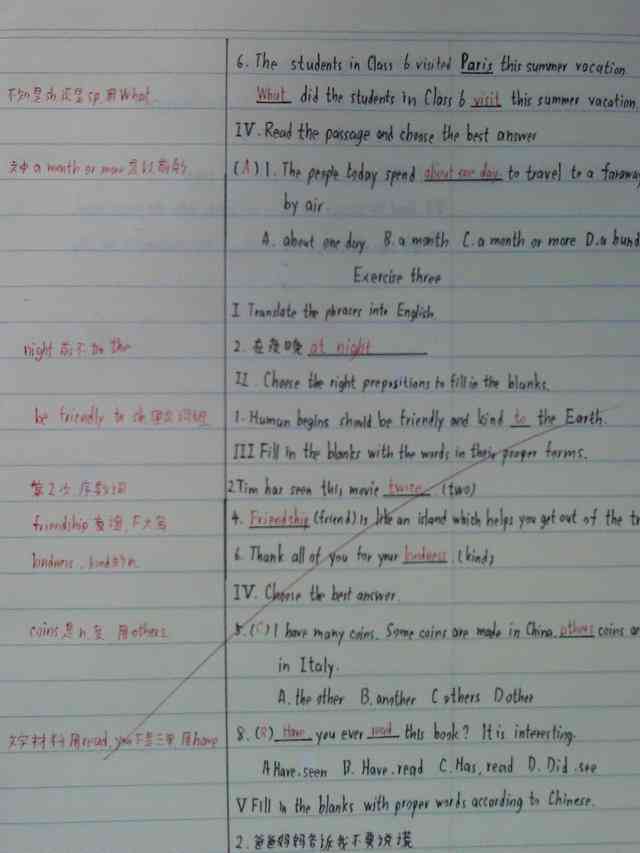 6. The students in Class 6 visited Paris this summer vacation.
What did the students in Class 6 visit this summer vacation
不知是sb还是sp, 用What
IV. Read the passage and choose the best answer
文中 a month or more 是以前的
(A) 1. The people today spend about one day to travel to a faraway
by air.
A. about one day B. a month C. a month or more D. a
Exercise three
I Translate the phrases into English.
night 前不加 the
2. 在夜晚 at night
II. Choose the right prepositions to fill in the blanks.
be friendly to sb 固定词组
1. Human begins should be friendly and kind to the Earth.
III Fill in the blanks with the words in their proper forms.
第2次, 序数词
2. Tim has seen this movie twice. (two)
friendship 友谊, F大写
4. Friendship (friend) is like an island which helps you get out of the
kindness, kind的n.
6. Thank all of you for your kindness. (kind)
IV. Choose the best answer.
coins 是 n. 复 用others
5. (C) I have many coins. Some coins are made in China. others coins
in Italy.
A. the other B. another C others D other
文字材料用read, you不是三单, 用have
8. (B) Have you ever read this book? It is interesting.
A Have, seen B. Have, read C. Has, read D. Did, see
V Fill in the blanks with proper words according to Chinese.
2. 爸爸妈妈告诉我不要说谎